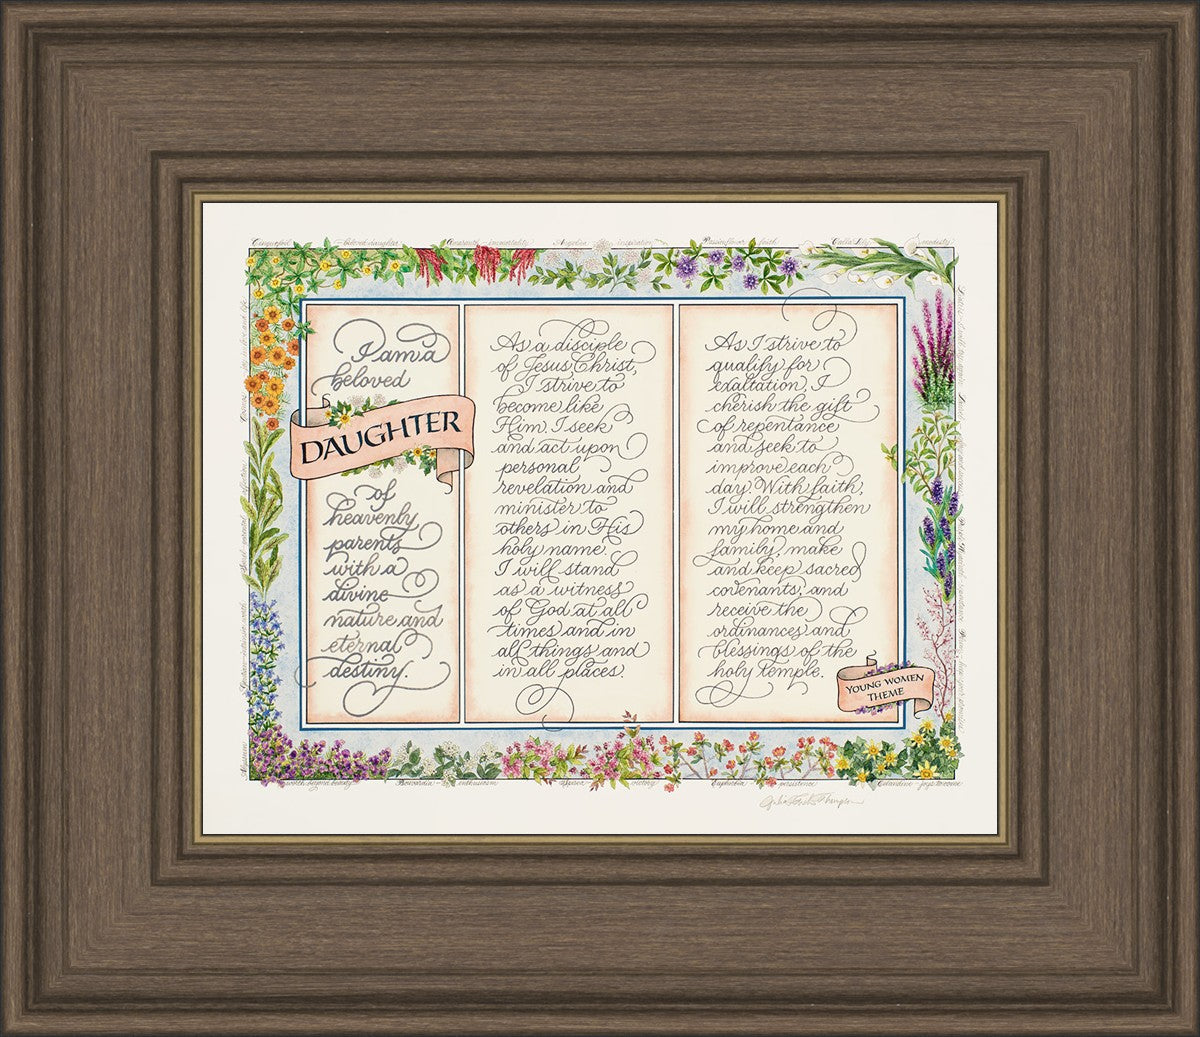 Cinquefoil beloved daughter Amaranth immortality Angelica inspiration Passionflower faith Calla Lily modesty
I am a
beloved
DAUGHTER
of
heavenly
parents
with a
divine
nature and
eternal
destiny.
As a disciple
of Jesus Christ,
I strive to
become like
Him. I seek
and act upon
personal
revelation and
minister to
others in His
holy name.
I will stand
as a witness
of God at all
times and in
all things and
in all places.
As I strive to
qualify for
exaltation, I
cherish the gift
of repentance
and seek to
improve each
day. With faith,
I will strengthen
my home and
family, make
and keep sacred
covenants, and
receive the
ordinances and
blessings of the
holy temple.
YOUNG WOMEN
THEME
Bouvardia enthusiasm victory Euphorbia persistence Celandine joys to come